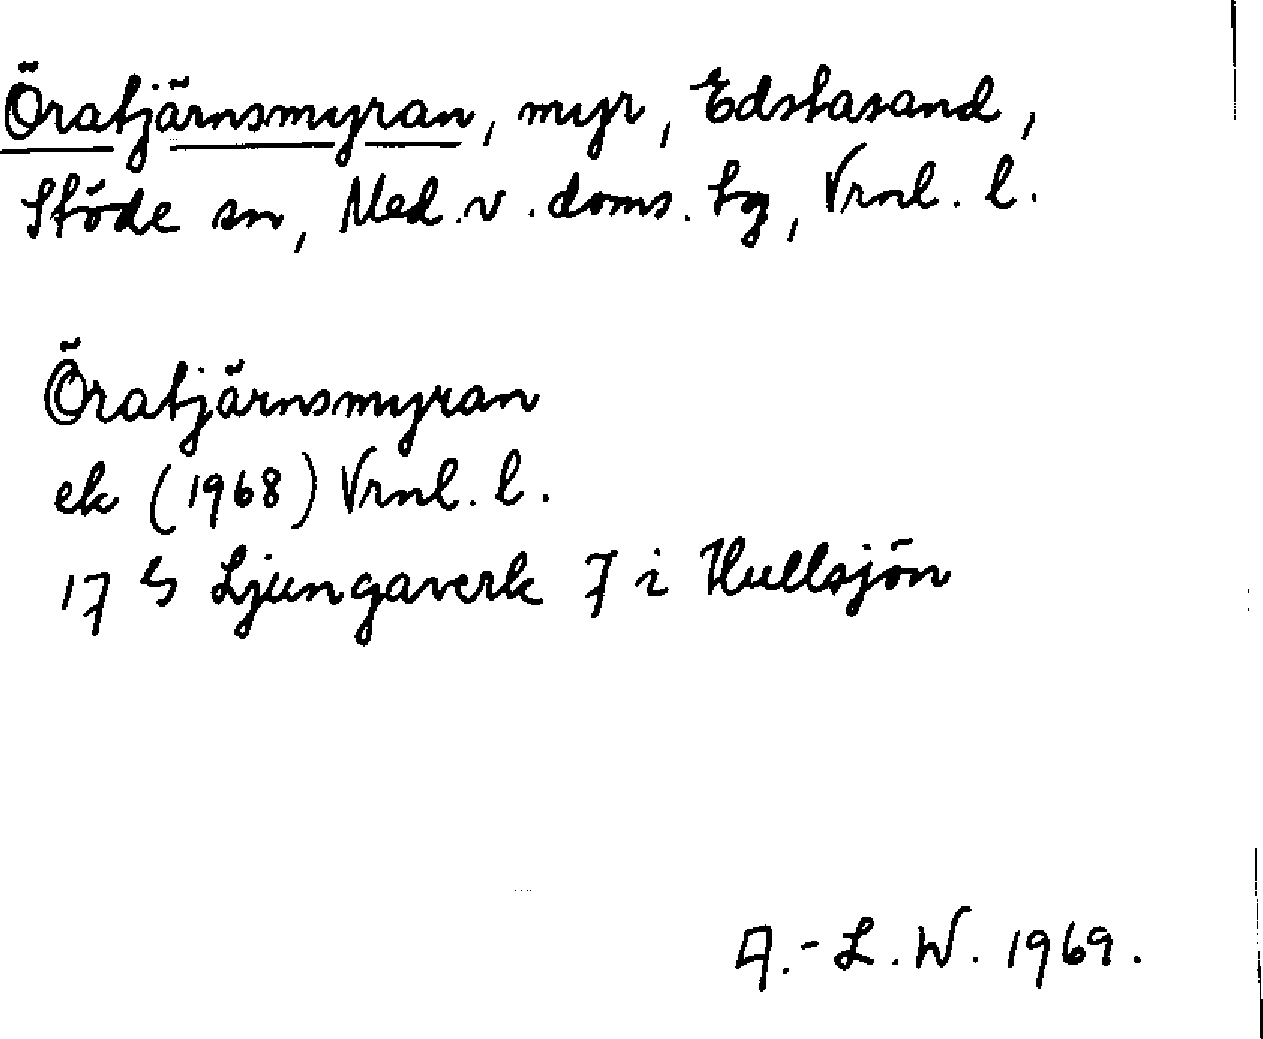 Öratjärnsmyran, myr, Edstasand,
Stöde sn, Med. v. doms. tg, Vrnl. l.
Öratjärnsmyran
ek (1968) Vrnl. l.
17 G Ljungaverk 7 i Hullsjön
A.-L. W. 1969.